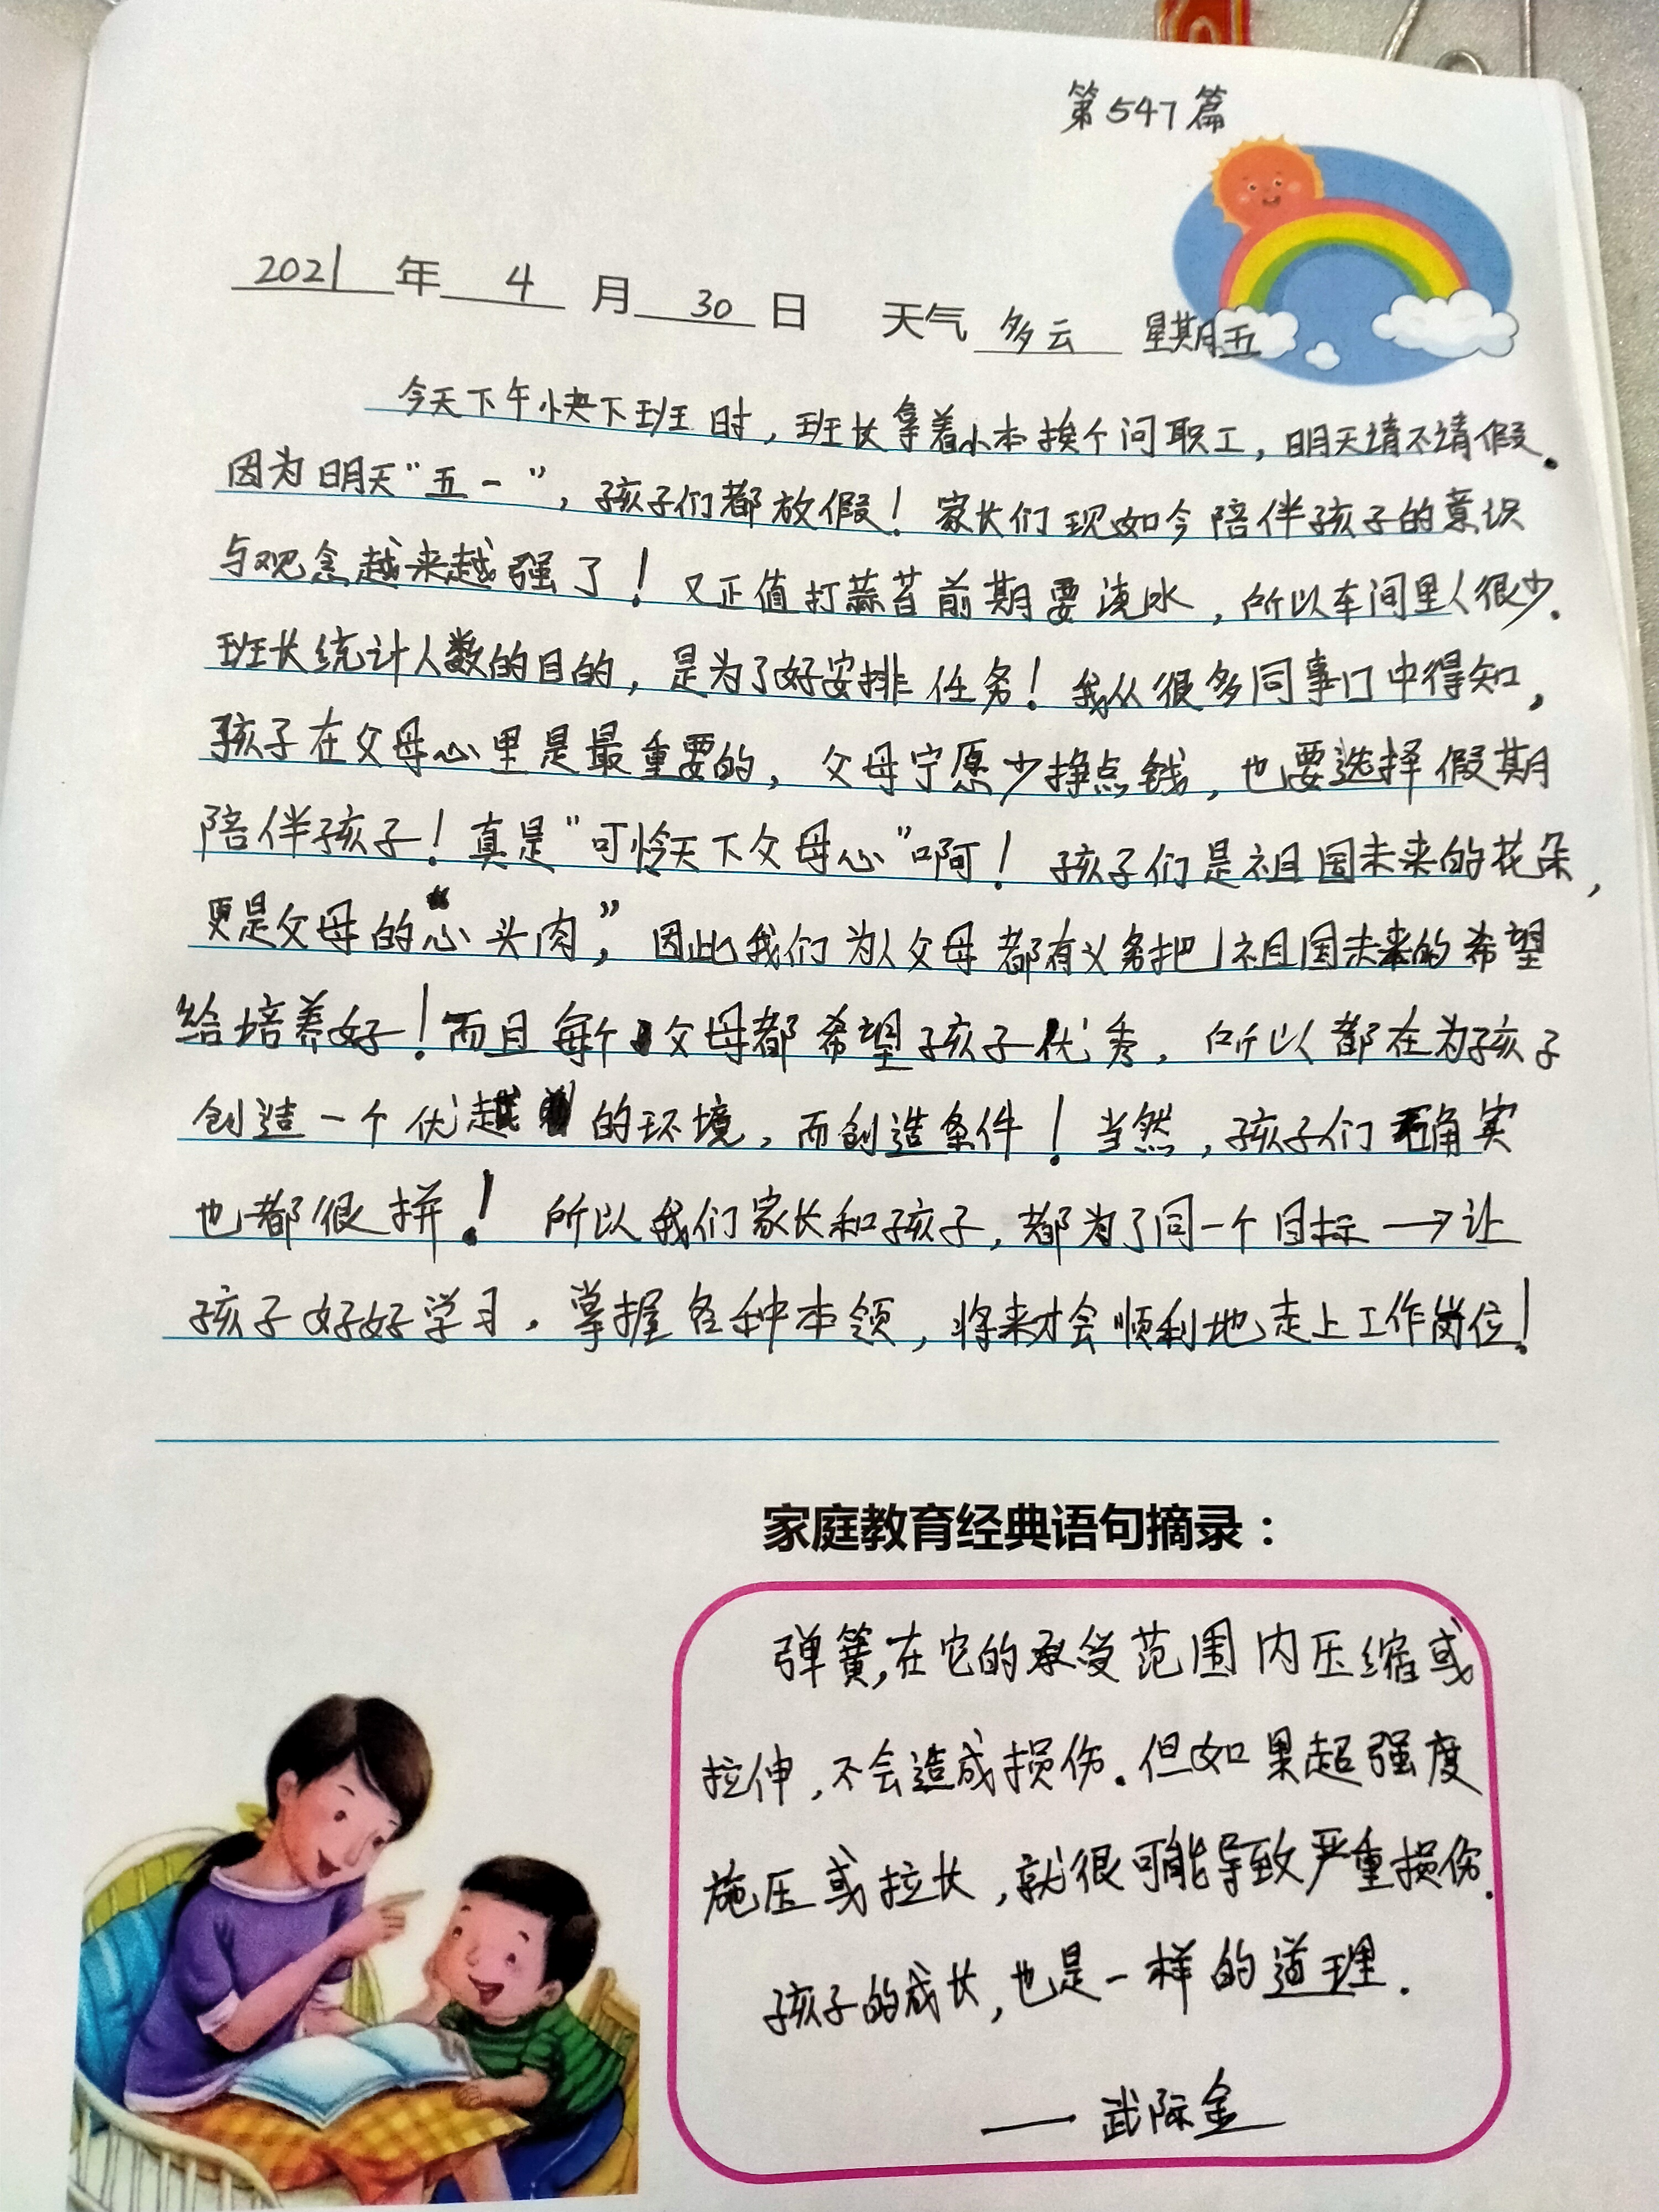 第547篇
2021年4月30日 天气多云 星期五
今天下午快下班时，班长拿着小本挨个问职工，明天请不请假。
因为明天“五一”，孩子们都放假！家长们现如今陪伴孩子的意识
与观念越来越强了！又正值打蒜苔前期要浇水，所以车间里人很少.
班长统计人数的目的，是为了好安排任务！我从很多同事门中得知，
孩子在父母心里是最重要的，父母宁愿少挣点钱，也要选择假期
陪伴孩子！真是“可怜天下父母心”啊！孩子们是祖国未来的花朵，
更是父母的“心头肉”，因此我们为人父母都有义务把祖国未来的希望
给培养好！而且每个父母都希望孩子优秀，所以都在为孩子
创造一个优越的环境，而创造条件！当然，孩子们确实
也都很拼！所以我们家长和孩子，都为了同一个目标→让
孩子好好学习，掌握各种本领，将来才会顺利地走上工作岗位！
家庭教育经典语句摘录：
弹簧，在它的承受范围内压缩或
拉伸，不会造成损伤.但如果超强度
施压或拉长，就很可能导致严重损伤.
孩子的成长，也是一样的道理.
——武际金